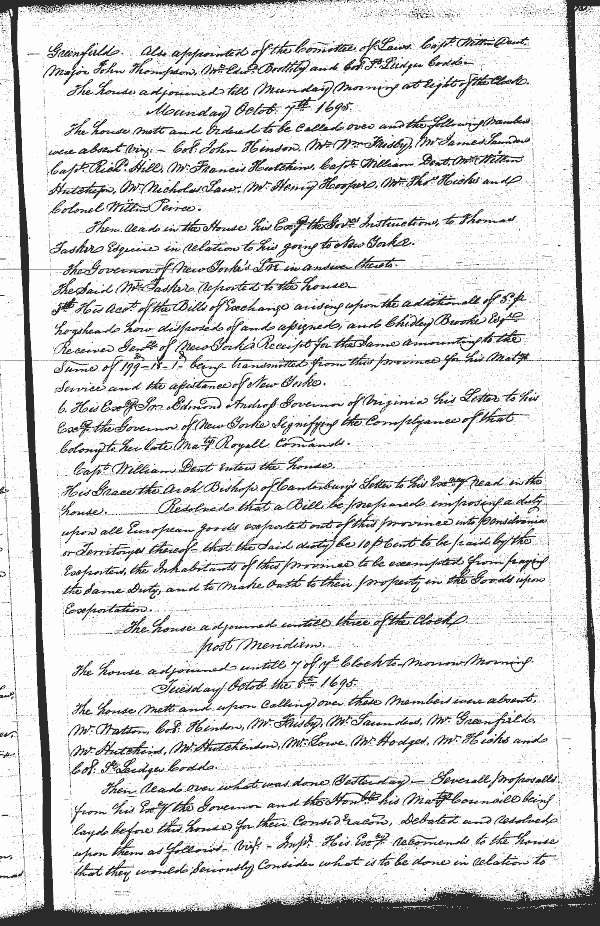 Greenfield. Also appointed of the Comittee of Laws. Capt. William Dent
Major John Thompson, Mr. Edwd. Boothby and Col. St. Leidger Codde
The house adjourned till Munday Morning at Eight of the Clock.
Munday Octob. 7th 1695.
The house mett and Ordered to be Called over and the following members
were absent viz: – Col. John Hinson, Mr. Wm. Frisby, Mr. James Saunders
Capt. Richd. Hill, Mr. Francis Hutchins, Capt. William Dent, Mr. William
Hutchison, Mr. Nicholas Law, Mr. Henry Hooper, Mr. Thos. Hicks and
Colonel William Peirce.
Then read in the House his Exy. the Govrs. Instructions, to Thomas
Tasker Esquire in relation to his going to New Yorke.
The Governor of New Yorke's Lre in answer thereto.
The Said Mr. Tasker reported to the house.
5th His Acot. of the Bills of Exchange arising upon the additionall of 3d p
hogshead how disposed of and assigned, and Chidley Brooke Esqre.
Receiver Genlls of New York's Receipt for the Same amounting to the
Sume of 199-18-1- being transmitted from this province for his Matys
Service and the assistance of New Yorke.
6. His Exy. Sr. Edmond Andross Governor of Virginia his Letter to his
Exy. the Governor of New Yorke Signifying the Complyance of that
Colony to her late Matys Royall Comands.
Capt. William Dent enters the house.
His Grace the Arch Bishop of Canterbury's Letter to his Exncy read in the
house. Resolved that a Bill be prepared imposing a duty
upon all European goods exported out of this province into Pensilvania
or Territoryes thereof – that the Said duty be 10 p Cent to be paid by the
Exporters, the Inhabitants of this Province to be exempted from paying
the Same Duty, and to Make Oath to their property in the Goods upon
Exportation.
The house adjourned untill three of the Clock
post Meridiem.
The house adjourned untill 7 of ye Clock to-morrow Morning
Tuesday Octob. the 8th 1695.
The house mett and upon Calling over these Members were absent,
Mr. Watson, Col. Hinson, Mr. Frisby, Mr. Saunders, Mr. Greenfield,
Mr. Hutchins, Mr. Hutchinson, Mr. Lowe, Mr. Hodges, Mr. Hicks and
Col. St. Leidger Codde.
Then read over what was done Yesterday – Severall proposalls
from his Exy. the Governor and the Honble his Matys Councill being
layd before this house for their Consideracon, Debated and resolved
upon them as follows – viz. – Imps. His Exy. recomends to the house
that they would Seriously Consider what is to be done in relation to